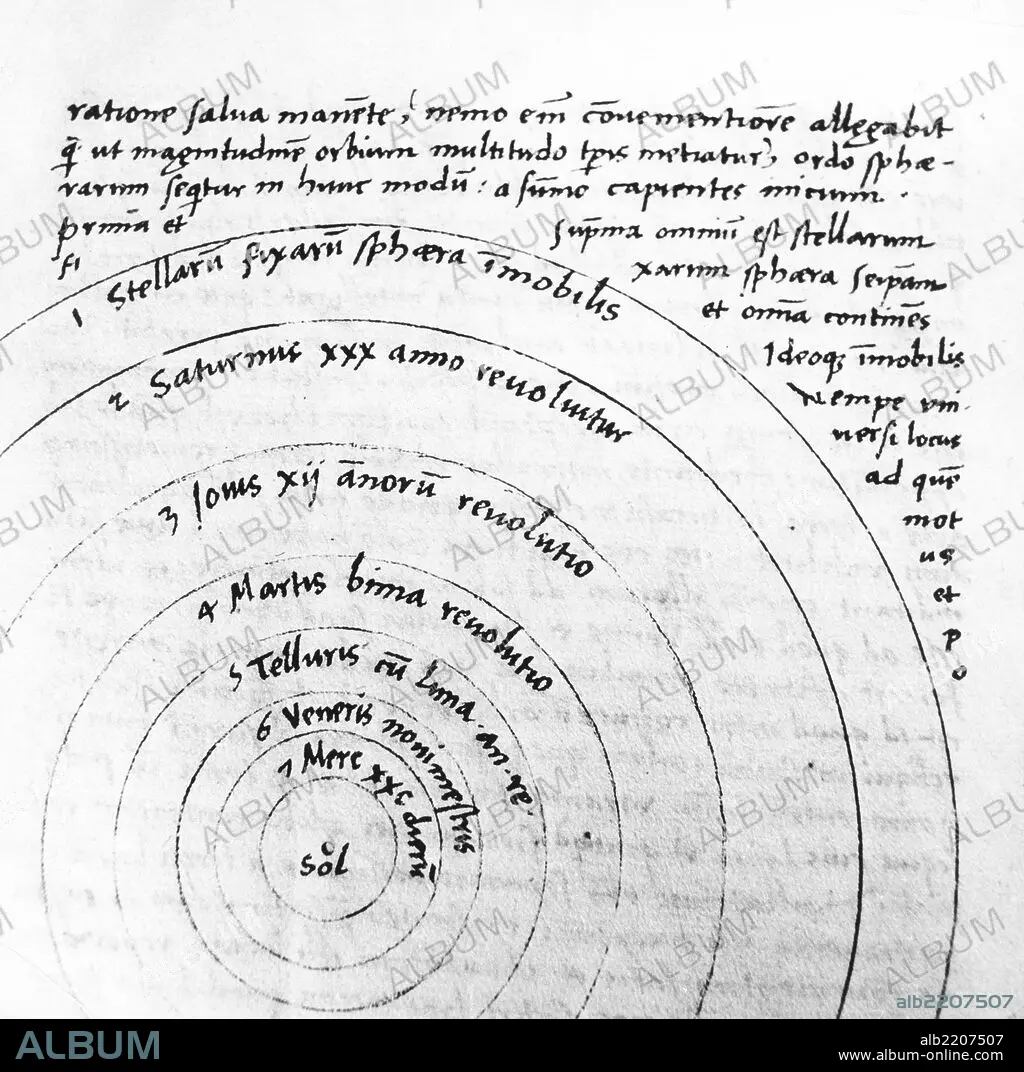 ratione salva manēte, nemo em̄ cōvenientiorē allegabit
q̄ ut magnitudinē orbium multitudo tp̄is metiatur, ordo sphæ-
rarum seq̄tur in hunc modū: a sūmo capientes initium.
prima et suprema omniū est stellarum
fi xarum sphæra seipam
et omīa continēs
Ideoqꝫ īmobilis
Nempe uni
versi locus
ad quē
mot
us
et
p
o
1 Stellarū fixarū sphæra īmobilis
2 Saturnus xxx anno revoluitur
3 Jovis xij ānorū revolutio
4 Martis bima revolutio
5 Telluris cū Luna. an. re.
6 Veneris nonimestris
7 Merc xxc dierū
Sol
ALBUM
alb2207507
ALBUM
alb2207507
www.album-online.com